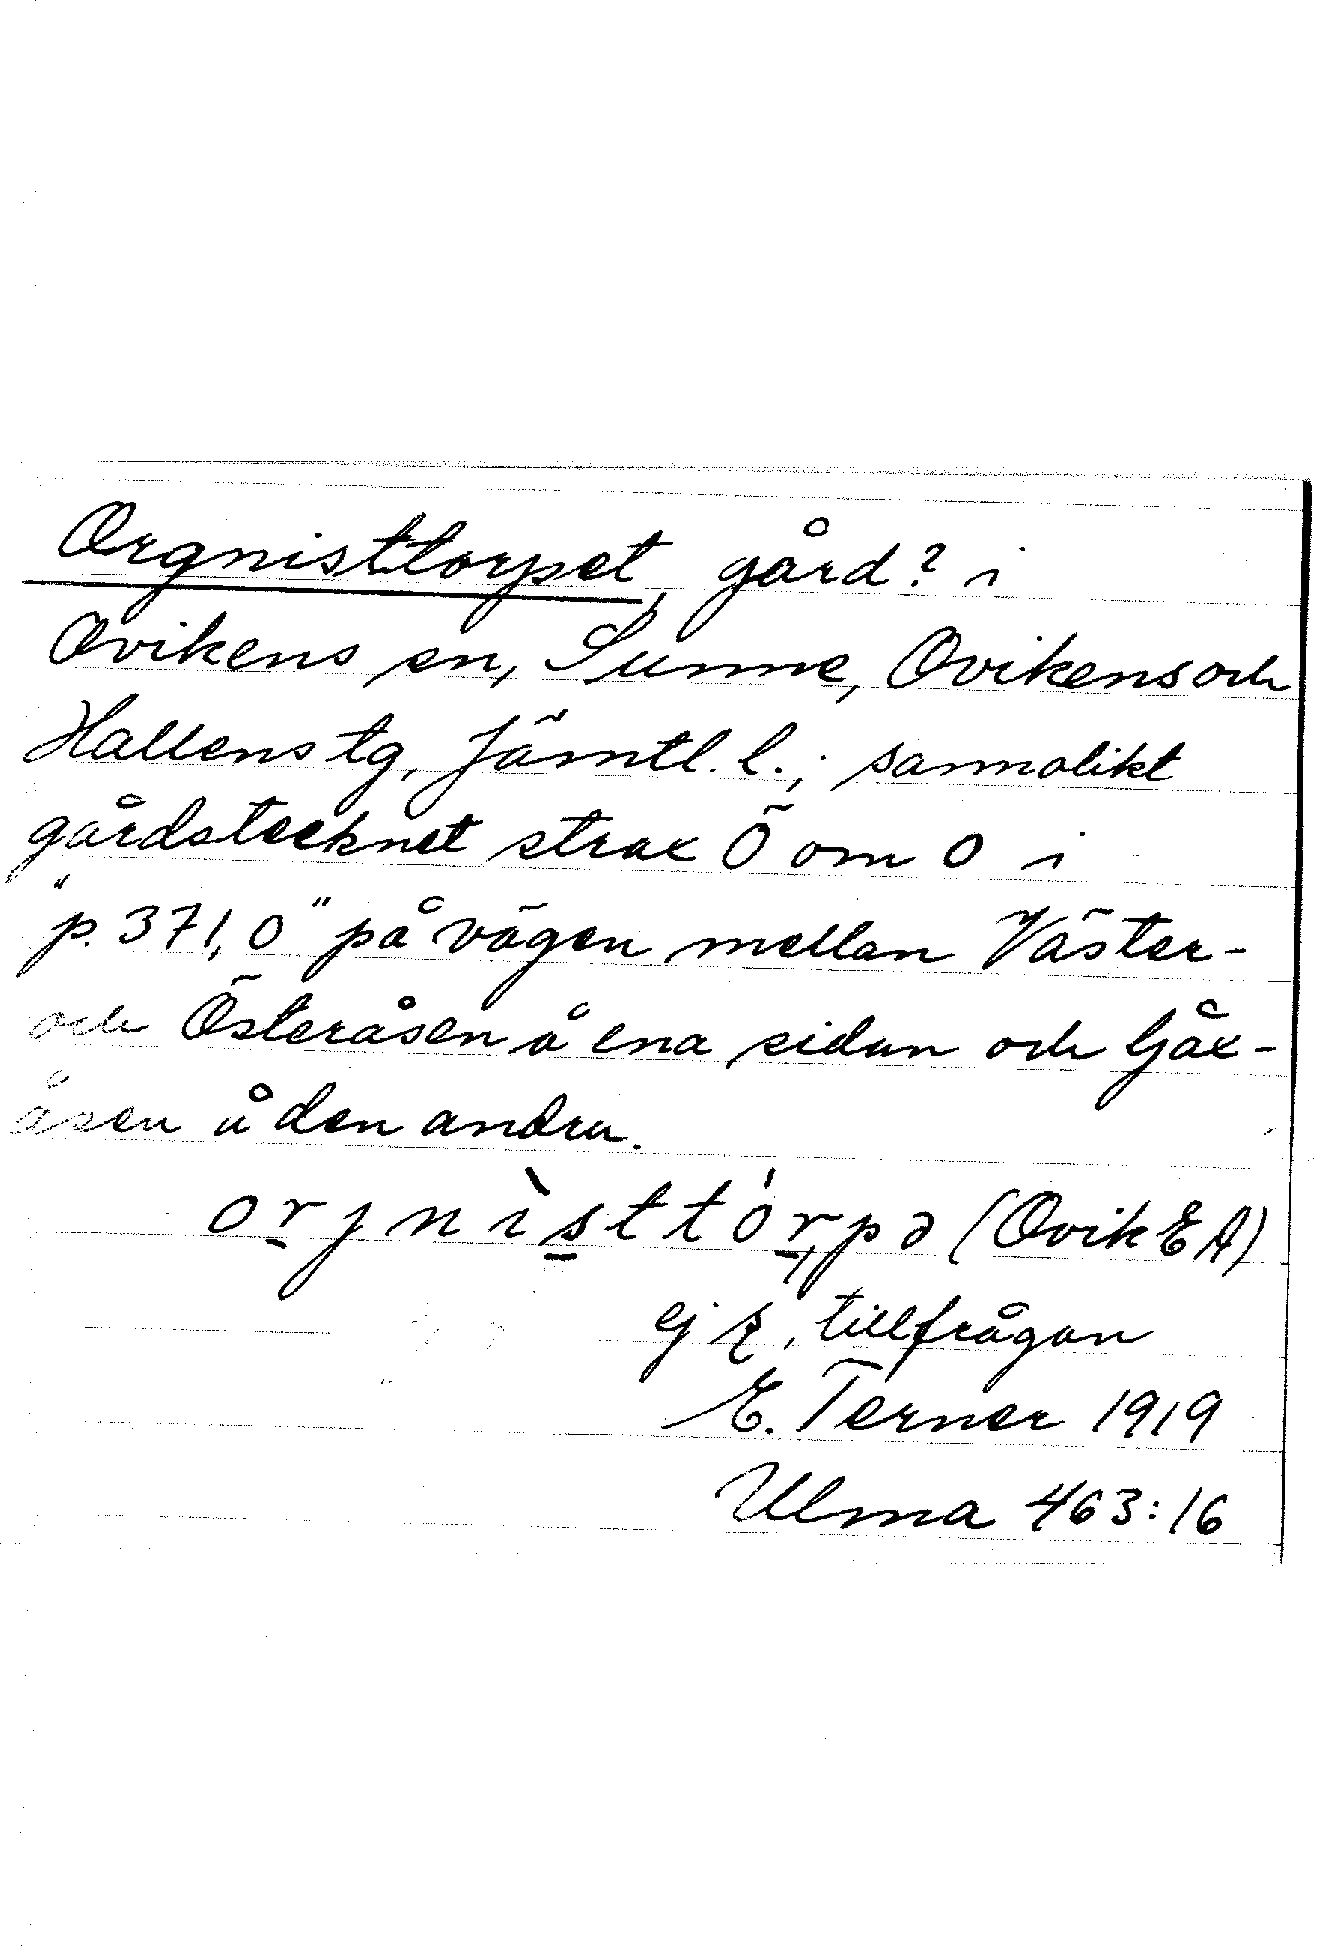 Orgnisttorpet, gård? i
Ovikens sn, Sunne, Ovikens och
Hallens tg, Jämtl. l.; sannolikt
gårdstecknet strax Ö om 0 i
"p. 371,0" på vägen mellan Väster-
och Österåsen å ena sidan och Gåx-
åsen å den andra.
orjnìsttórpə (Ovik EA)
ej , tillfrågan
E. Terner 1919
Ulma 463:16